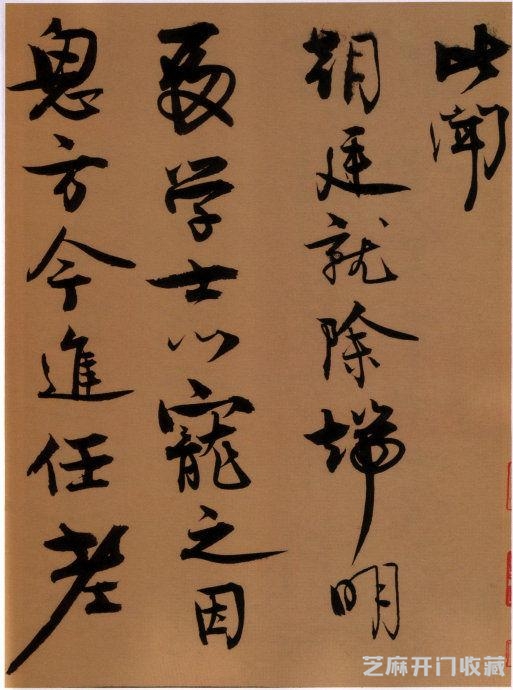 比聞
朝廷就除端明
殿学士以寵之因
思方今進任
芝麻开门收藏